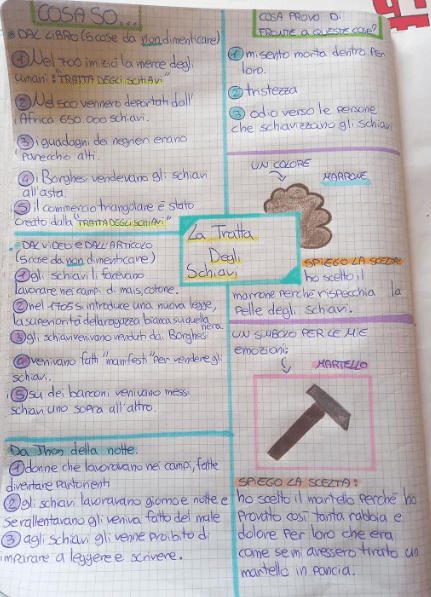 COSA SO...
DAL LIBRO (5 cose da non dimenticare)
① Nel 700 iniziò la merce degli
umani: "TRATTA DEGLI SCHIAVI"
② Nel 500 vennero deportati dall'
Africa 650.000 schiavi.
③ i guadagni dei negrieri erano
parecchio alti.
④ i Borghesi vendevano gli schiavi
all'asta.
⑤ il commercio triangolare è stato
creato dalla "TRATTA DEGLI SCHIAVI"
DAL VIDEO e DALL'ARTICOLO
(5 cose da non dimenticare)
① gli schiavi li facevano
lavorare nei campi di mais, cotone.
② nel 1705 si introduce una nuova legge,
la superiorità della razza bianca su quella
nera.
③ gli schiavi venivano venduti dai Borghesi
④ venivano fatti "manifesti" per vendere gli
schiavi.
⑤ su dei banconi venivano messi
schiavi uno sopra all'altro.
Da Thon della notte.
① donne che lavoravano nei campi, fatte
diventare partorienti
② gli schiavi lavoravano giorno e notte e
se rallentavano gli veniva fatto del male
③ agli schiavi gli venne proibito di
imparare a leggere e scrivere.
La Tratta
Degli
Schiavi
COSA PROVO DI
FRONTE A QUESTE COSE?
① mi sento morta dentro per
loro.
② tristezza
③ odio verso le persone
che schiavizzano gli schiavi
UN COLORE
MARRONE
SPIEGO LA SCELTA:
ho scelto il
marrone perché rispecchia la
pelle degli schiavi.
UN SIMBOLO PER LE MIE
EMOZIONI:
MARTELLO
SPIEGO LA SCELTA:
ho scelto il martello perché ho
provato così tanta rabbia e
dolore per loro che era
come se mi avessero tirato un
martello in pancia.